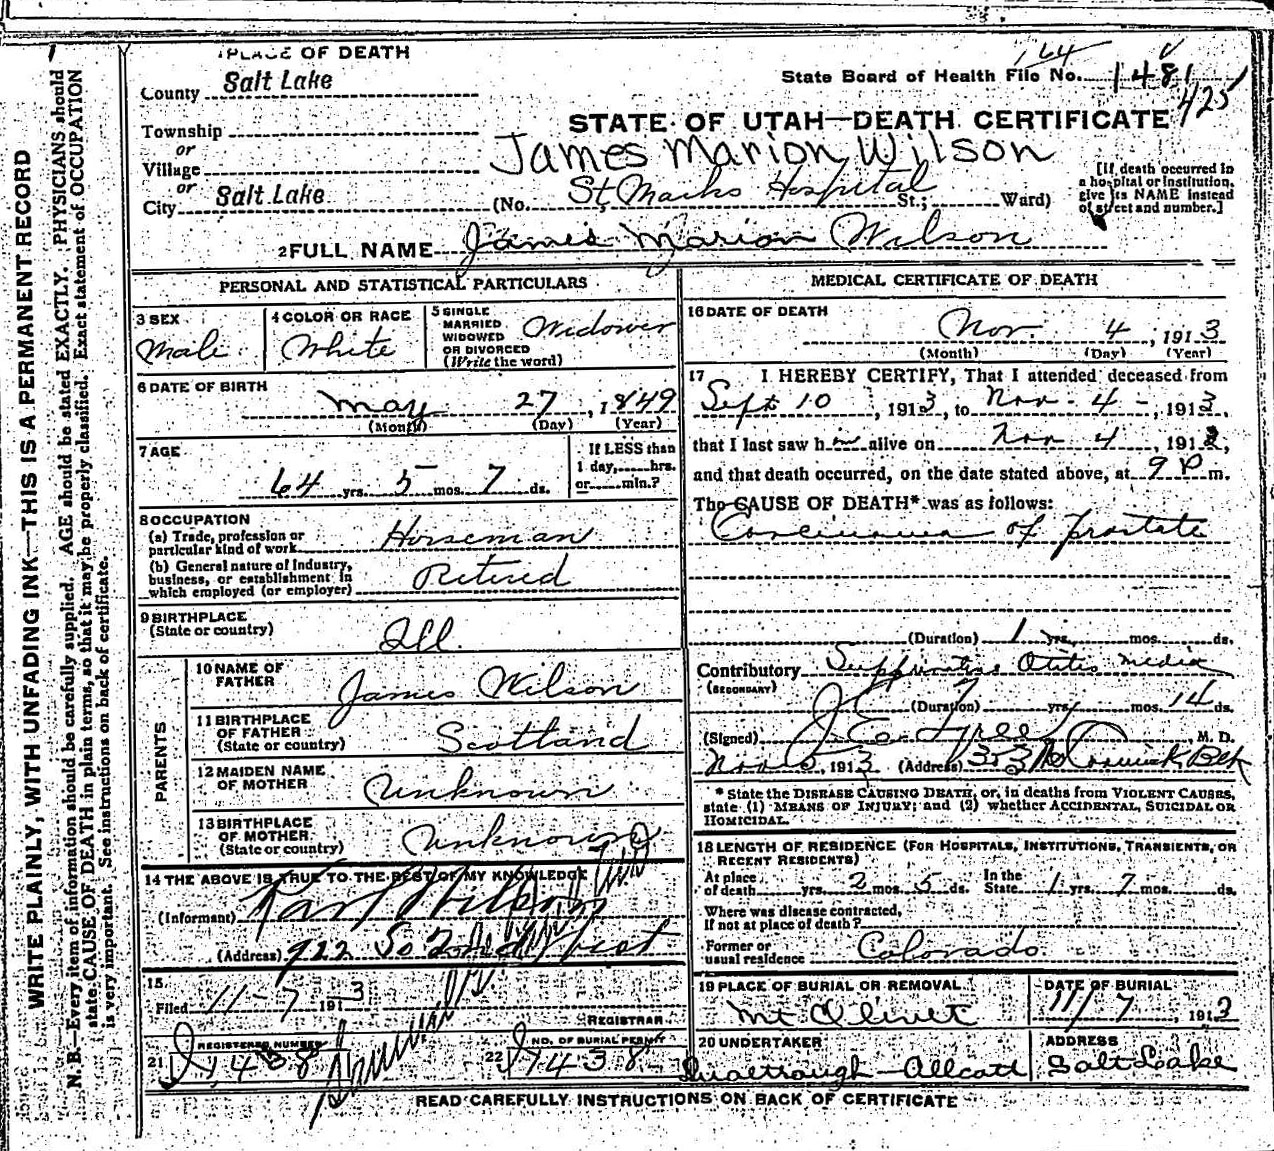 WRITE PLAINLY, WITH UNFADING INK—THIS IS A PERMANENT RECORD
N. B.—Every item of information should be carefully supplied. AGE should be stated EXACTLY. PHYSICIANS should
state CAUSE OF DEATH in plain terms, so that it may be properly classified. Exact statement of OCCUPATION
is very important. See instructions on back of certificate.
PLACE OF DEATH
County Salt Lake
Township
or
Village
or
City Salt Lake
164
State Board of Health File No. 1481
425
STATE OF UTAH—DEATH CERTIFICATE
James Marion Wilson
(No. St Marks Hospital St.; Ward)
[If death occurred in
a hospital or institution,
give its NAME instead
of street and number.]
2 FULL NAME James Marion Wilson
PERSONAL AND STATISTICAL PARTICULARS
3 SEX
Male
4 COLOR OR RACE
White
5 SINGLE
MARRIED
WIDOWED
OR DIVORCED
(Write the word)
Widower
6 DATE OF BIRTH
May 27, 1849
(Month) (Day) (Year)
7 AGE
64 yrs. 5 mos. 7 ds.
If LESS than
1 day, hrs.
or min.?
8 OCCUPATION
(a) Trade, profession or
particular kind of work Horseman
(b) General nature of Industry,
business, or establishment in
which employed (or employer) Retired
9 BIRTHPLACE
(State or country) Ill.
PARENTS
10 NAME OF
FATHER James Wilson
11 BIRTHPLACE
OF FATHER
(State or country) Scotland
12 MAIDEN NAME
OF MOTHER Unknown
13 BIRTHPLACE
OF MOTHER
(State or country) Unknown
14 THE ABOVE IS TRUE TO THE BEST OF MY KNOWLEDGE
(Informant) Karl Wilson
(Address) 922 So 2nd West
15
Filed 11-7 1913
REGISTRAR
21 REGISTERED NUMBER
1438
22 NO. OF BURIAL PERMIT
1438
MEDICAL CERTIFICATE OF DEATH
16 DATE OF DEATH
Nov. 4, 1913
(Month) (Day) (Year)
17 I HEREBY CERTIFY, That I attended deceased from
Sept 10, 1913, to Nov - 4 -, 1913,
that I last saw him alive on Nov 4, 1913,
and that death occurred, on the date stated above, at 9 P m.
The CAUSE OF DEATH* was as follows:
Carcinoma of prostate
(Duration) 1 yrs. mos. ds.
Contributory Suppurative Otitis media
(SECONDARY)
(Duration) yrs. mos. 14 ds.
(Signed) J. E. Tyree M. D.
Nov 5, 1913 (Address) 323 McCornick Bldg
* State the DISEASE CAUSING DEATH, or, in deaths from VIOLENT CAUSES,
state (1) MEANS OF INJURY; and (2) whether ACCIDENTAL, SUICIDAL OR
HOMICIDAL.
18 LENGTH OF RESIDENCE (FOR HOSPITALS, INSTITUTIONS, TRANSIENTS, OR
RECENT RESIDENTS)
At place of death yrs. 2 mos. 5 ds. In the State 1 yrs. 7 mos. ds.
Where was disease contracted,
If not at place of death?
Former or
usual residence Colorado
19 PLACE OF BURIAL OR REMOVAL
Mt Olivet
DATE OF BURIAL
11/7 1913
20 UNDERTAKER
Allcott
ADDRESS
Salt Lake
READ CAREFULLY INSTRUCTIONS ON BACK OF CERTIFICATE